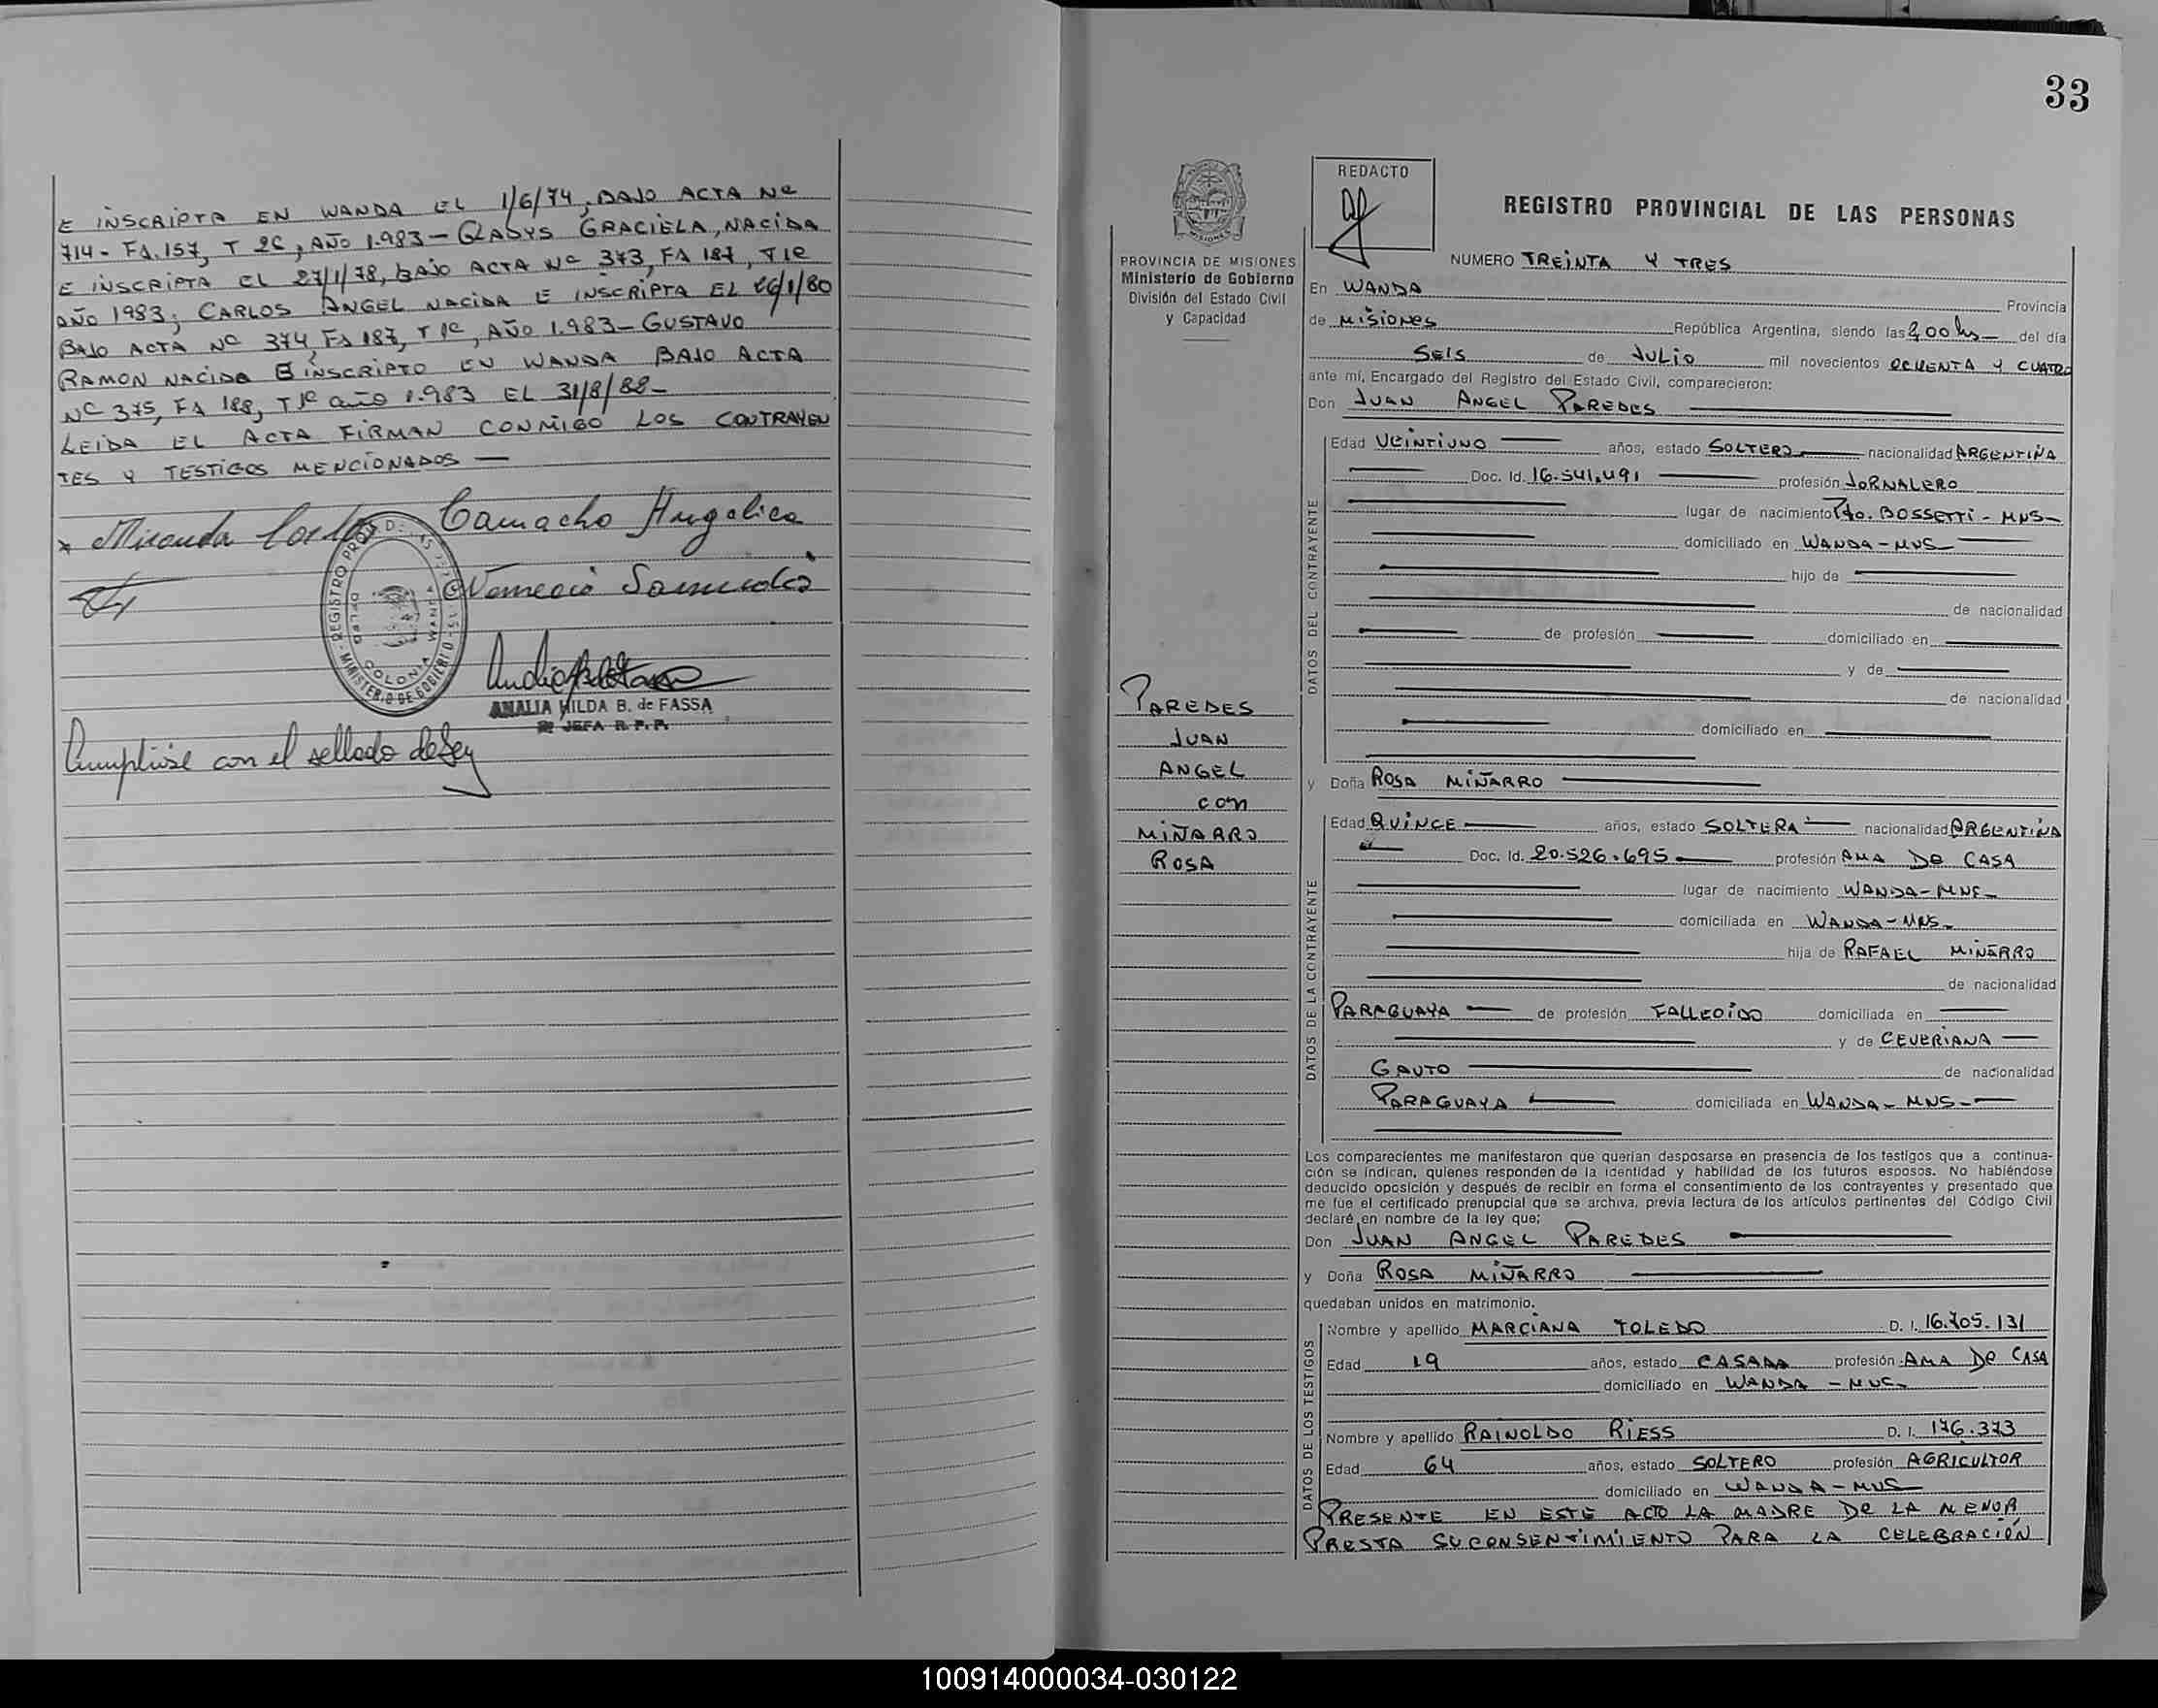 E INSCRIPTA EN WANDA EL 1/6/74, BAJO ACTA Nº
714- Fº.157, T 2º, AÑO 1.983 - GLADYS GRACIELA, NACIDA
E INSCRIPTA EL 27/1/78, BAJO ACTA Nº 373, Fº 187, T 1º
AÑO 1983; CARLOS ANGEL NACIDA E INSCRIPTA EL 26/1/80
BAJO ACTA Nº 374 Fº 187, T 1º, AÑO 1.983 - GUSTAVO
RAMON NACIDO E INSCRIPTO EN WANDA BAJO ACTA
Nº 375, Fº 188, T 1º año 1.983 EL 31/8/82-
LEIDA EL ACTA FIRMAN CONMIGO LOS CONTRAYEN
TES Y TESTIGOS MENCIONADOS —
x Miranda Camacho Angelica
REGISTRO PROV. DE
MINISTERIO DE GOBIERNO
DELEG.
COLONIA WANDA
ANALIA HILDA B. de FASSA
JEFA R. P. P.
Cumplióse con el sellado de Ley
33
PROVINCIA DE MISIONES
Ministerio de Gobierno
División del Estado Civil
y Capacidad
PAREDES
JUAN
ANGEL
con
MIÑARRO
ROSA
REDACTO
REGISTRO PROVINCIAL DE LAS PERSONAS
NUMERO TREINTA Y TRES
En WANDA Provincia
de MISIONES República Argentina, siendo las 9,00 hs — del día
SEIS de JULIO mil novecientos OCHENTA Y CUATRO
ante mí, Encargado del Registro del Estado Civil, comparecieron:
Don JUAN ANGEL PAREDES
DATOS DEL CONTRAYENTE
Edad VEINTIUNO años, estado SOLTERO nacionalidad ARGENTINA
Doc. Id. 16.541.491 profesión JORNALERO
lugar de nacimiento Pto. BOSSETTI - MNS-
domiciliado en WANDA - MNS
hijo de
de nacionalidad
de profesión domiciliado en
y de
de nacionalidad
domiciliado en
y Doña ROSA MIÑARRO
DATOS DE LA CONTRAYENTE
Edad QUINCE años, estado SOLTERA nacionalidad ARGENTINA
Doc. Id. 20.526.695 profesión AMA DE CASA
lugar de nacimiento WANDA-MNS-
domiciliada en WANDA-MNS-
hija de RAFAEL MIÑARRO
de nacionalidad
PARAGUAYA de profesión FALLECIDO domiciliada en
y de CEVERIANA
GAUTO de nacionalidad
PARAGUAYA domiciliada en WANDA - MNS-
Los comparecientes me manifestaron que querían desposarse en presencia de los testigos que a continua-
ción se indican, quienes responden de la identidad y habilidad de los futuros esposos. No habiéndose
deducido oposición y después de recibir en forma el consentimiento de los contrayentes y presentado que
me fue el certificado prenupcial que se archiva, previa lectura de los artículos pertinentes del Código Civil
declaré en nombre de la ley que;
Don JUAN ANGEL PAREDES
y Doña ROSA MIÑARRO
quedaban unidos en matrimonio.
DATOS DE LOS TESTIGOS
Nombre y apellido MARCIANA TOLEDO D. I. 16.705.131
Edad 19 años, estado CASADA profesión AMA DE CASA
domiciliado en WANDA - MNS-
Nombre y apellido RAINOLDO RIESS D. I. 176.373
Edad 64 años, estado SOLTERO profesión AGRICULTOR
domiciliado en WANDA - MNS
PRESENTE EN ESTE ACTO LA MADRE DE LA MENOR
PRESTA SU CONSENTIMIENTO PARA LA CELEBRACIÓN
100914000034-030122